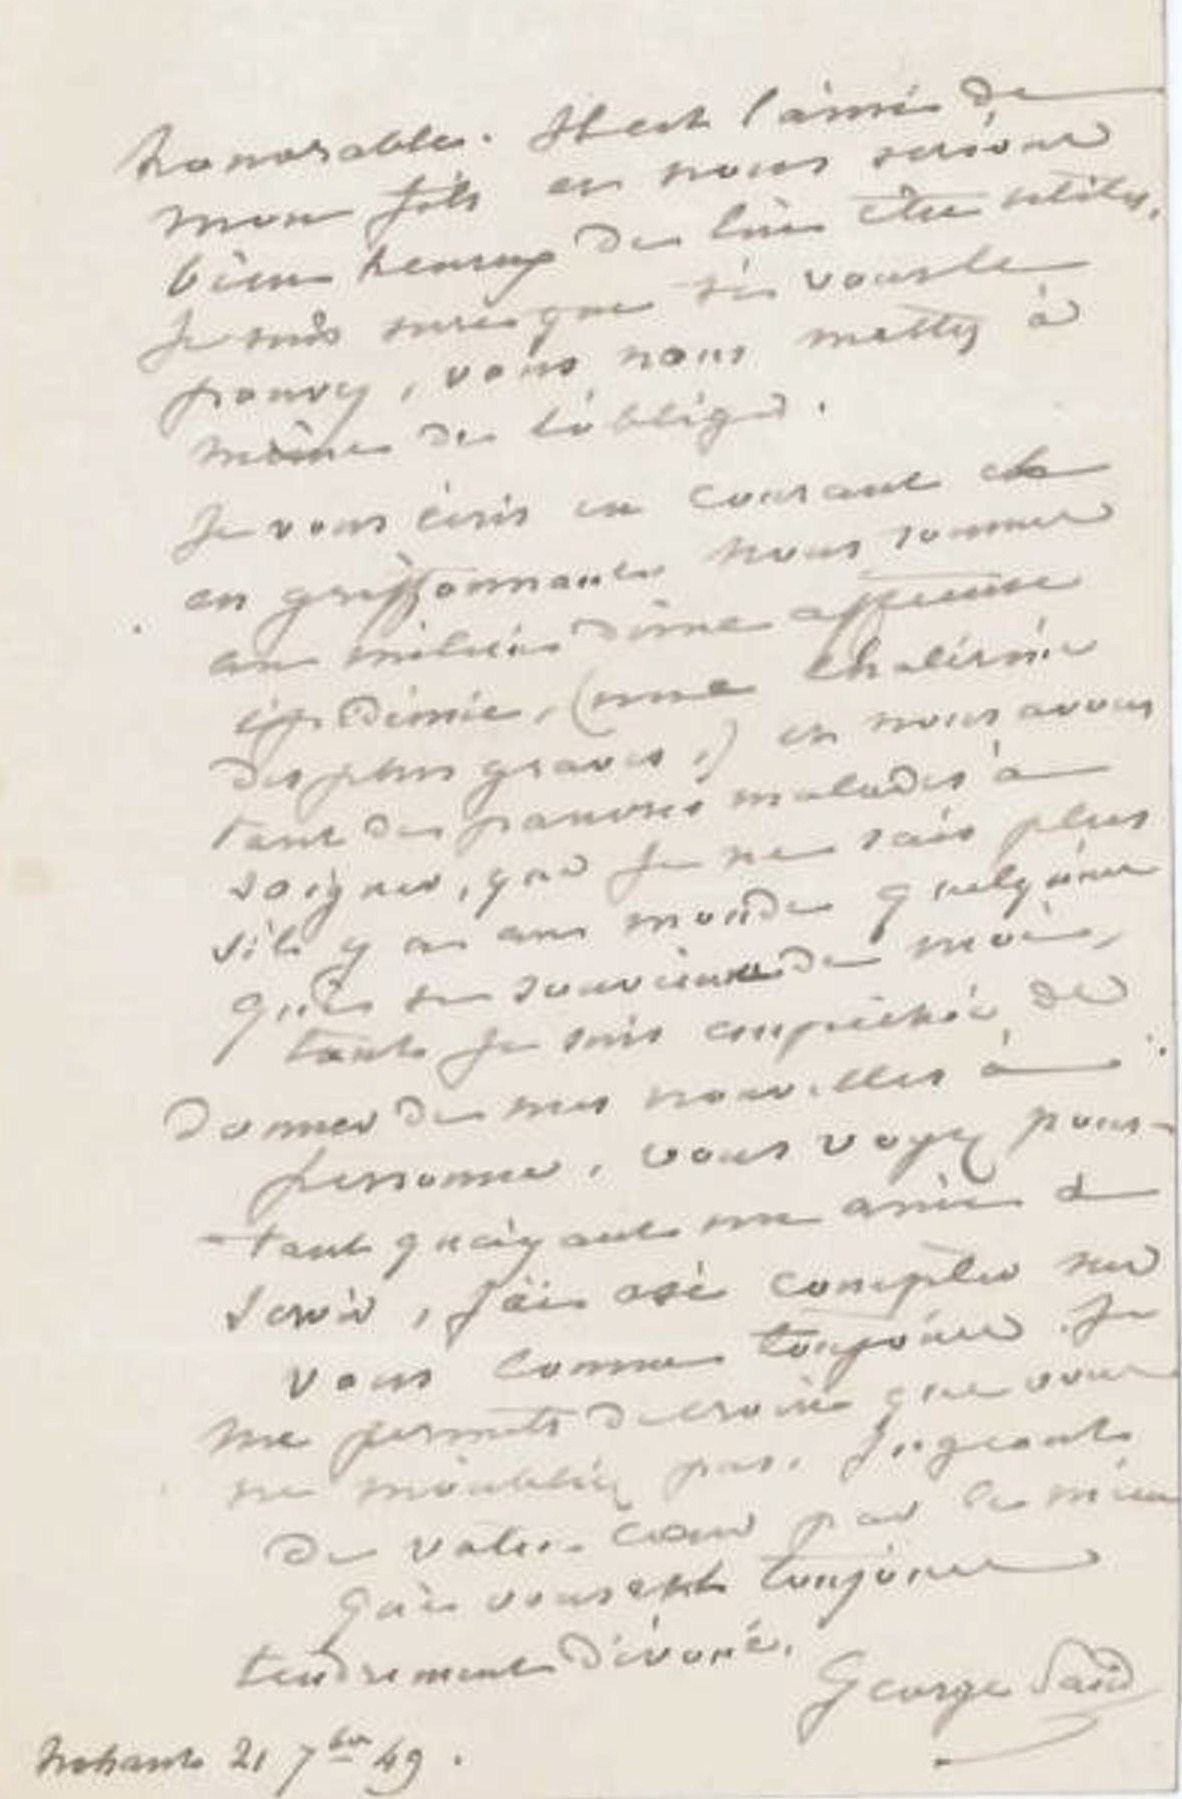 honorable. Il est l'ami de
mon fils et nous serions
bien heureux de lui être utiles.
Je suis sure que si vous le
pouvez, vous nous mettrez à
même de l'obliger.
Je vous écris en courant et
en griffonnant. Nous sommes
au milieu d'une affreuse
épidémie, (une cholérine
des plus graves,) et nous avons
tant de pauvres malades à
soigner, que je ne sais plus
s'il y a au monde quelqu'un
qui se souvienne de moi,
tant je suis empêchée de
donner de mes nouvelles à
personne. Vous voyez pour-
-tant qu'ayant un ami à
servir, j'ai osé compter sur
vous comme toujours. Je
me permets de croire que vous
ne m'oubliez pas. Jugeant
de votre cœur par le mien
qui vous est toujours
tendrement dévoué.
George Sand
Nohant 21 7bre 49.